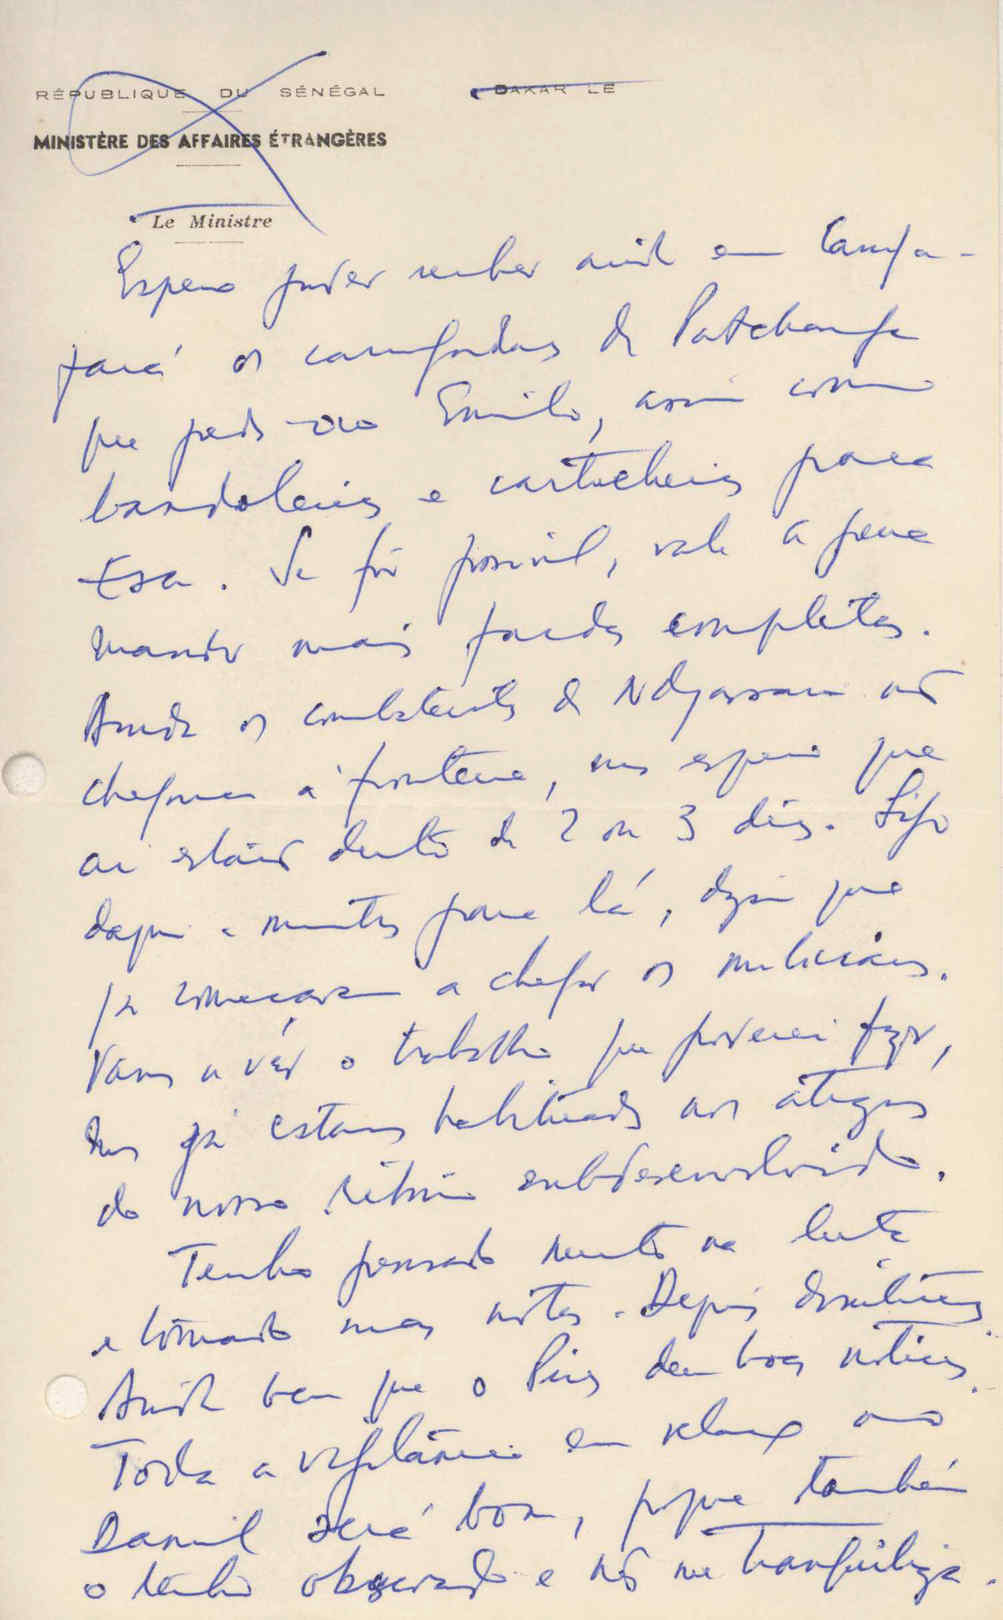 RÉPUBLIQUE DU SÉNÉGAL
DAKAR LE
MINISTÈRE DES AFFAIRES ÉTRANGÈRES
Le Ministre
Espero poder receber ainda em Campa-
pará os camaradas de Patchanga
que pedi ao Emílio, assim como
bandoleiras e cartucheiras para
Esa. Se fôr possível, vale a pena
mandar mais fardas completas.
Ainda os combatentes de Ndjassane não
chegaram à fronteira, mas espero que
aí estarão dentro de 2 ou 3 dias. Sigo
daqui a minutos para lá, dizem que
já começaram a chegar os milicianos.
Vamos a vêr o trabalho que poderei fazer,
mas já estamos habituados aos atrazos
do nosso ritmo subdesenvolvido.
Tenho pensado muito na luta
e tomado mais notas. Depois discutiremos
Ainda bem que o Pires deu boas notícias.
Toda a vigilância em relação ao
Daniel será boa, porque também
o tenho observado e não me tranquiliza.